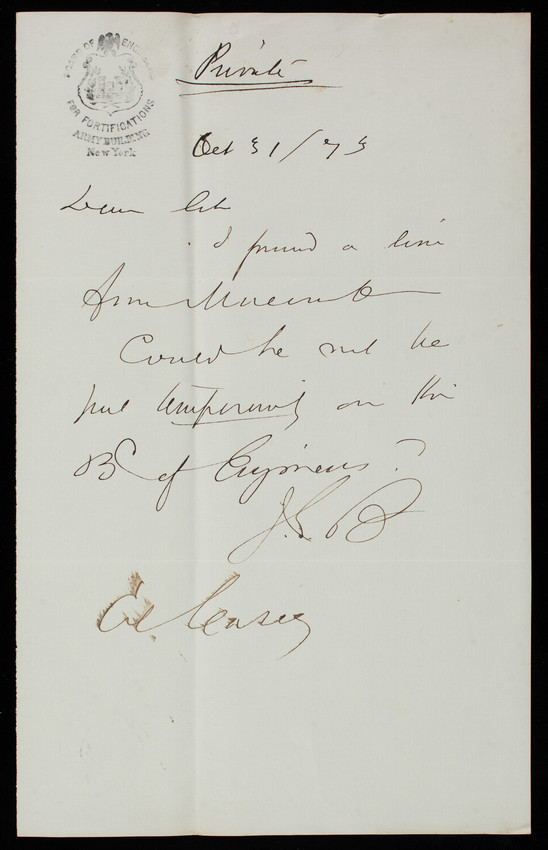 BOARD OF ENGINEERS
FOR FORTIFICATIONS
ARMY BUILDING
New York
Private
Oct 31/73
Dear Col
I found a line
from Macomb
Could he not be
put temporarily on the
Bd of Engineers?
J. G. B
Col Casey